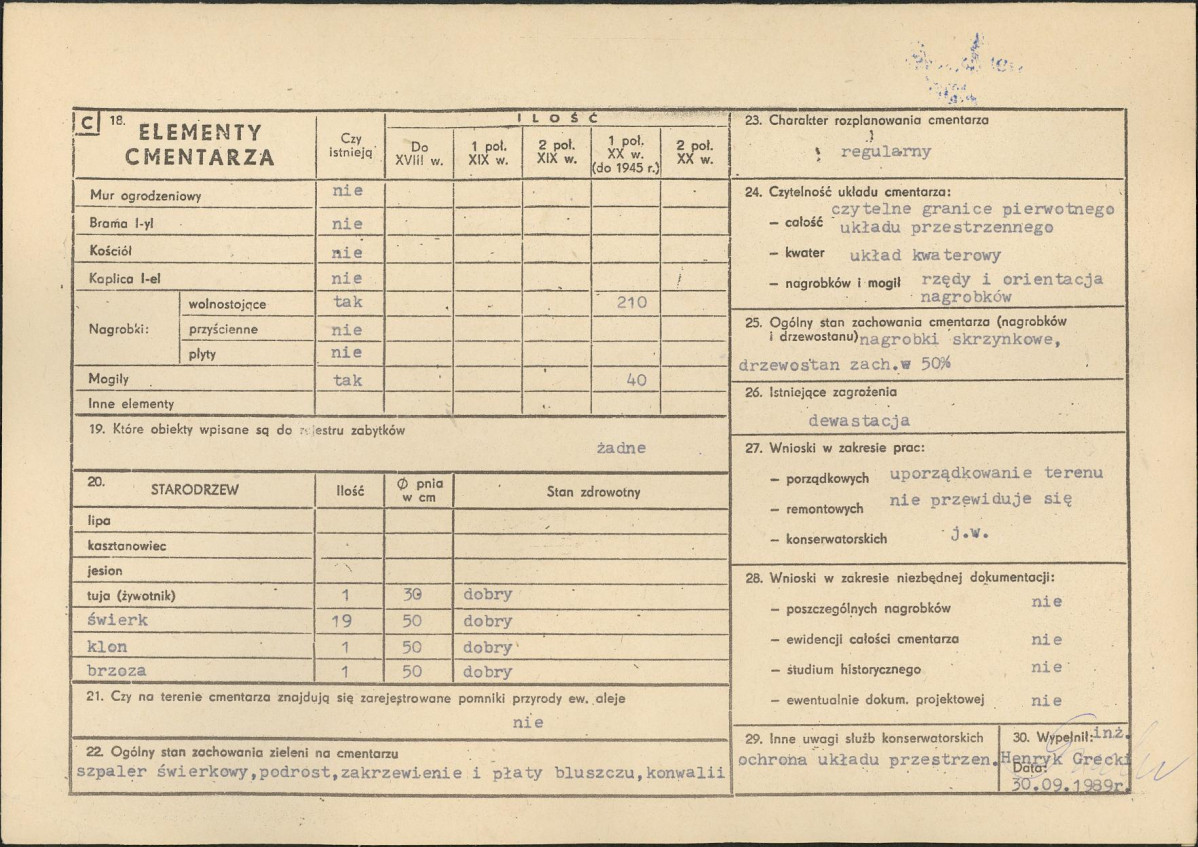 C 18. ELEMENTY CMENTARZA
Czy istnieją
ILOŚĆ
Do XVIII w.
1 poł. XIX w.
2 poł. XIX w.
1 poł. XX w. (do 1945 r.)
2 poł. XX w.
Mur ogrodzeniowy nie
Brama I-yl nie
Kościół nie
Kaplica I-el nie
Nagrobki:
wolnostojące tak 210
przyścienne nie
płyty nie
Mogiły tak 40
Inne elementy
19. Które obiekty wpisane są do rejestru zabytków
żadne
20. STARODRZEW Ilość Ø pnia w cm Stan zdrowotny
lipa
kasztanowiec
jesion
tuja (żywotnik) 1 30 dobry
świerk 19 50 dobry
klon 1 50 dobry
brzoza 1 50 dobry
21. Czy na terenie cmentarza znajdują się zarejestrowane pomniki przyrody ew. aleje
nie
22. Ogólny stan zachowania zieleni na cmentarzu
szpaler świerkowy,podrost,zakrzewienie i płaty bluszczu,konwalii
23. Charakter rozplanowania cmentarza
regularny
24. Czytelność układu cmentarza:
– całość czytelne granice pierwotnego
układu przestrzennego
– kwater układ kwaterowy
– nagrobków i mogił rzędy i orientacja
nagrobków
25. Ogólny stan zachowania cmentarza (nagrobków
i drzewostanu) nagrobki skrzynkowe,
drzewostan zach.w 50%
26. Istniejące zagrożenia
dewastacja
27. Wnioski w zakresie prac:
– porządkowych uporządkowanie terenu
– remontowych nie przewiduje się
– konserwatorskich j.w.
28. Wnioski w zakresie niezbędnej dokumentacji:
– poszczególnych nagrobków nie
– ewidencji całości cmentarza nie
– studium historycznego nie
– ewentualnie dokum. projektowej nie
29. Inne uwagi służb konserwatorskich
ochrona układu przestrzen.
30. Wypełnił: inż.
Henryk Grecki
Data:
30.09.1989r.